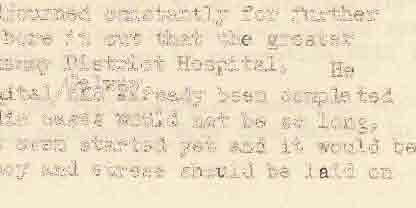 constantly for further
bore it out that the greater
District Hospital. He
already been completed
cases would not be so long,
been started yet and it would be
and stress should be laid on